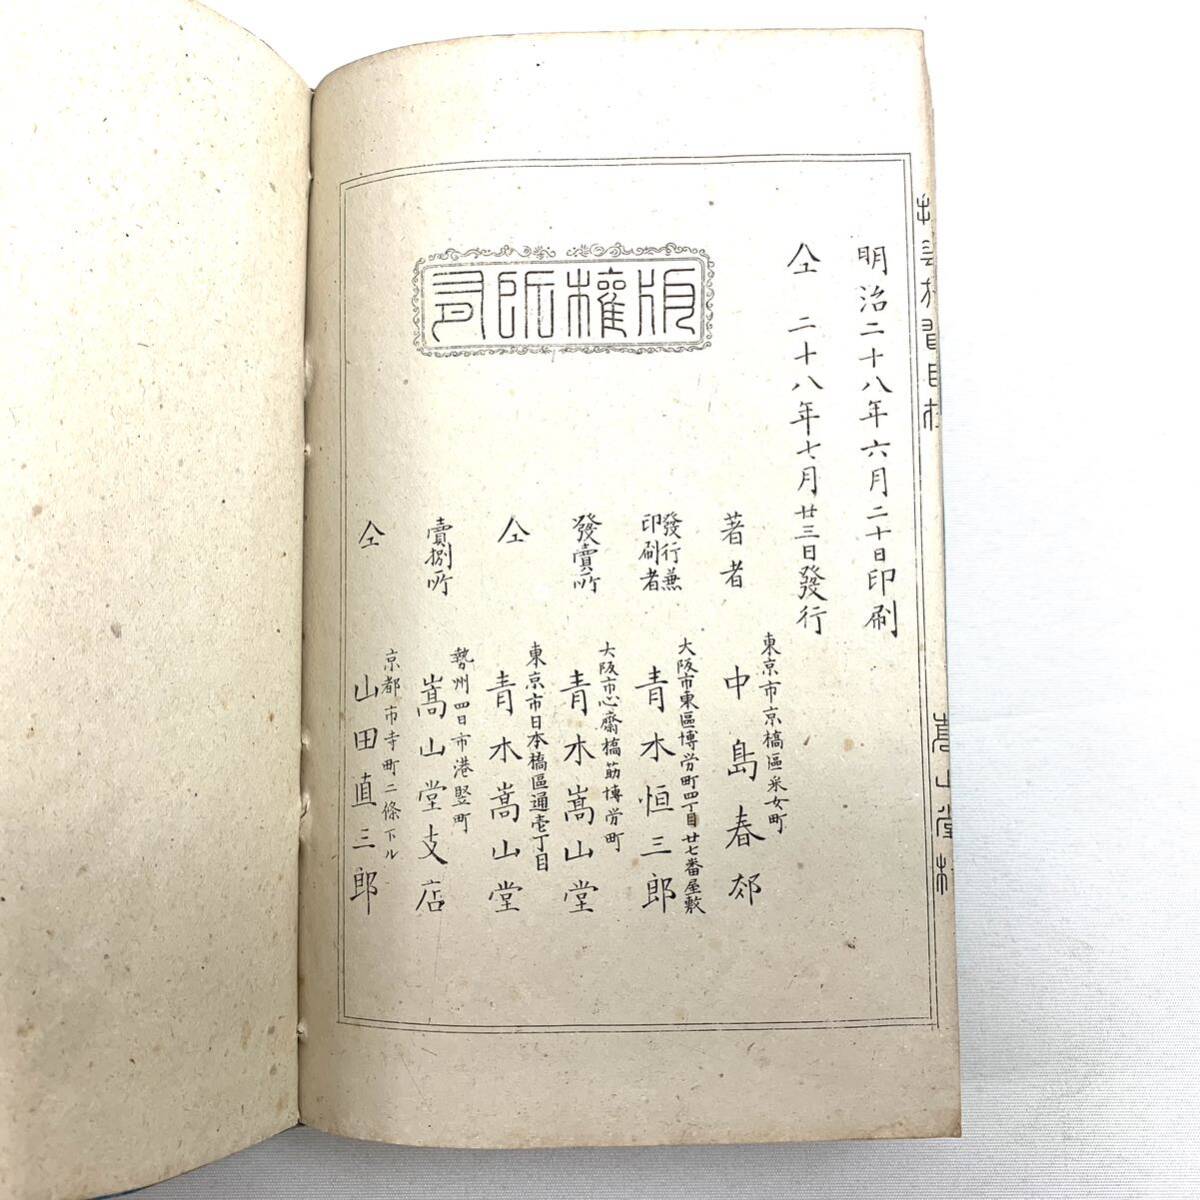 明治二十八年六月二十日印刷
仝 二十八年七月廿三日發行
版權所有
著者 東京市京橋區采女町
中島春郊
發行兼印刷者 大阪市東區博労町四丁目廿七番屋敷
青木恒三郎
發賣所 大阪市心齋橋筋博労町
青木嵩山堂
仝 東京市日本橋區通壱丁目
青木嵩山堂
賣捌所 勢州四日市港竪町
嵩山堂支店
仝 京都市寺町二條下ル
山田直三郎